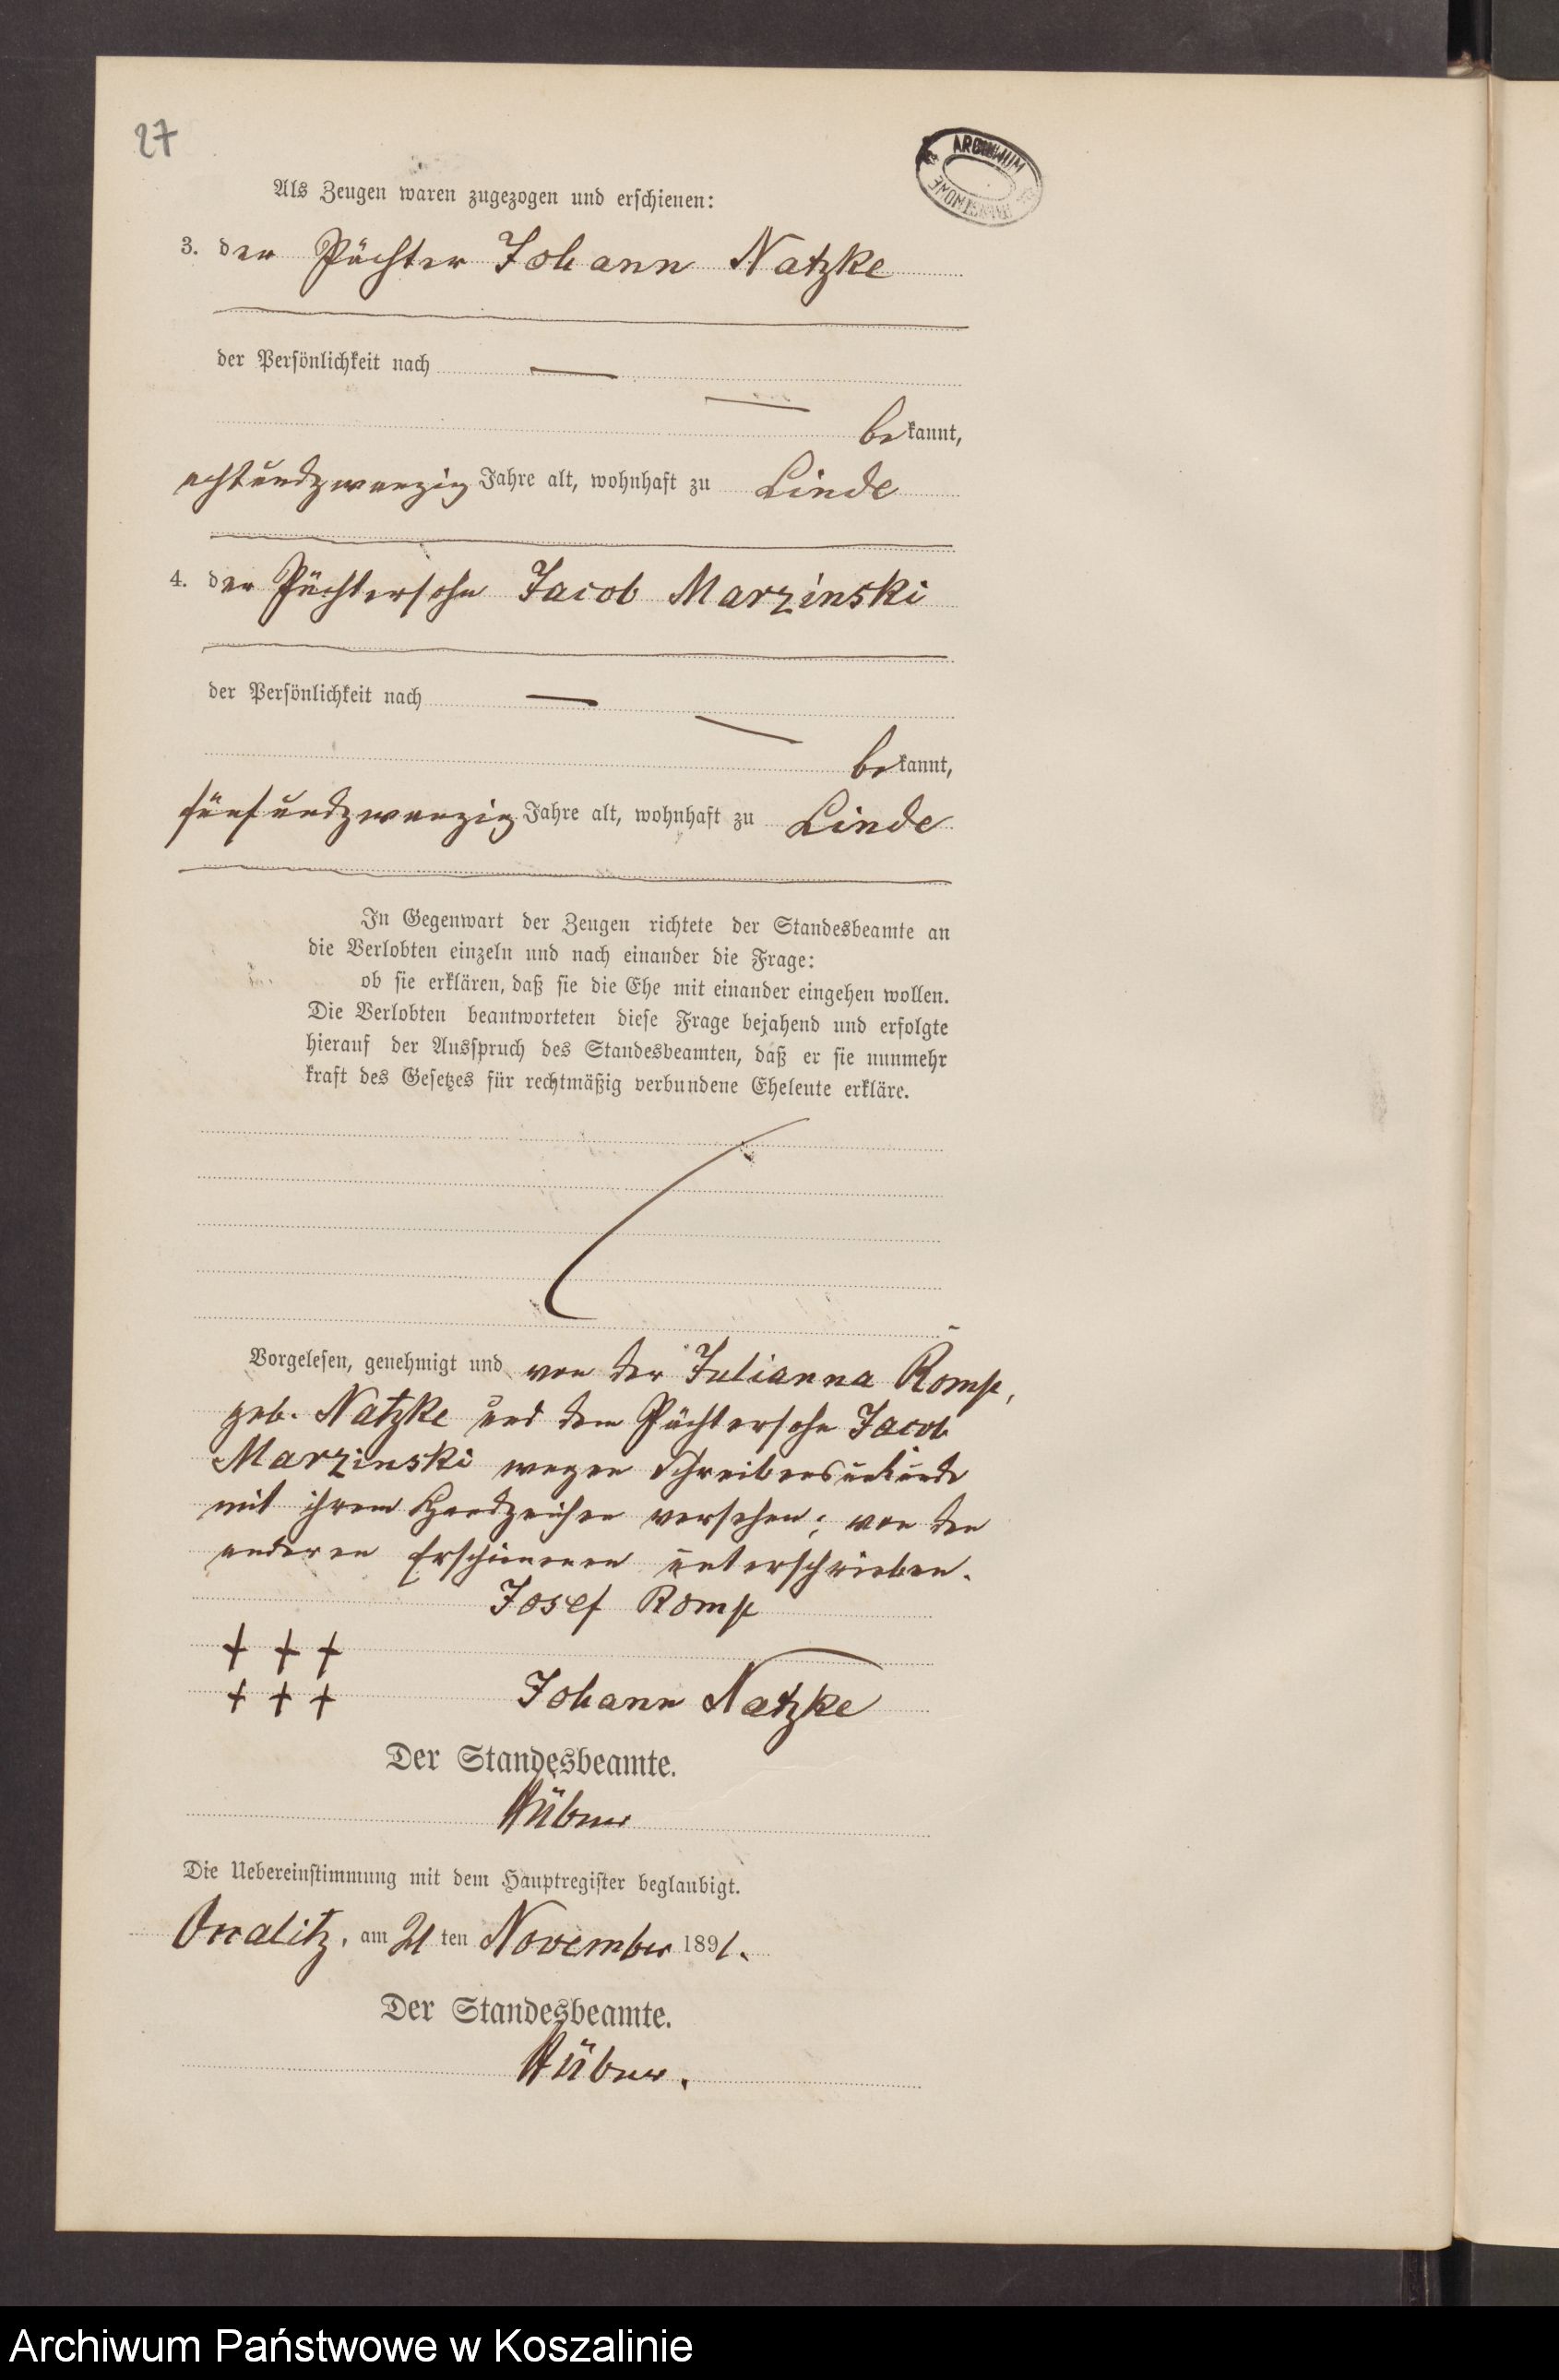 27
ARCHIWUM
PAŃSTWOWE
Als Zeugen waren zugezogen und erschienen:
3. der Pächter Johann Natzke
der Persönlichkeit nach —
— bekannt,
achtundzwanzig Jahre alt, wohnhaft zu Linde
4. der Pächtersohn Jacob Marzinski
der Persönlichkeit nach —
— bekannt,
fünfundzwanzig Jahre alt, wohnhaft zu Linde
In Gegenwart der Zeugen richtete der Standesbeamte an
die Verlobten einzeln und nach einander die Frage:
ob sie erklären, daß sie die Ehe mit einander eingehen wollen.
Die Verlobten beantworteten diese Frage bejahend und erfolgte
hierauf der Ausspruch des Standesbeamten, daß er sie nunmehr
kraft des Gesetzes für rechtmäßig verbundene Eheleute erkläre.
Vorgelesen, genehmigt und von der Julianna Romp,
geb. Natzke und dem Pächtersohn Jacob
Marzinski wegen Schreibensunkunde
mit ihrem Handzeichen versehen; von den
anderen Erschienenen unterschrieben.
Josef Romp
+ + +
+ + + Johann Natzke
Der Standesbeamte.
Hübner
Die Uebereinstimmung mit dem Hauptregister beglaubigt.
am 21ten November 1891.
Der Standesbeamte.
Hübner.
Archiwum Państwowe w Koszalinie